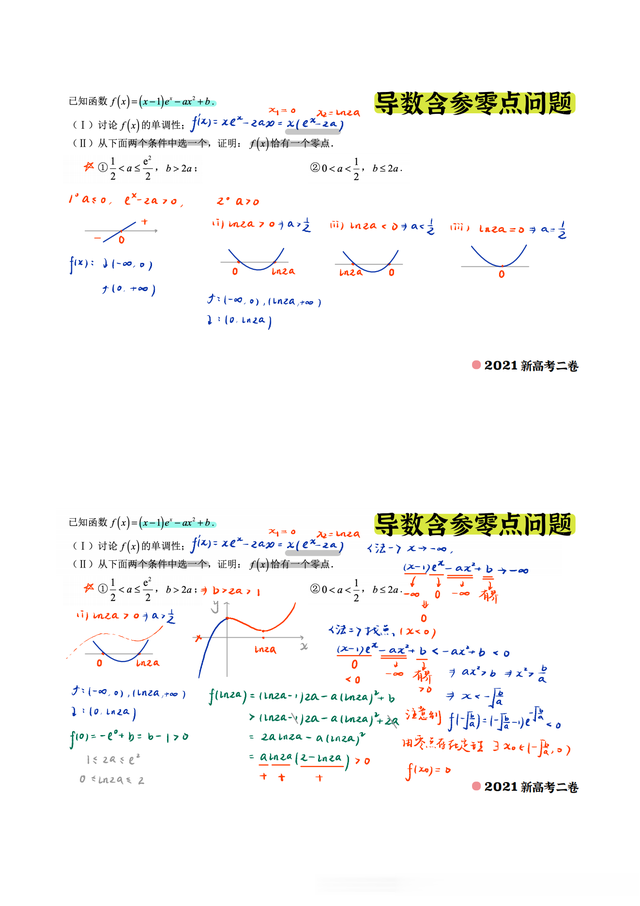 导数含参零点问题
已知函数 f(x)=(x-1)e^x-ax²+b.
x₁=0 x₂=ln2a
(Ⅰ)讨论 f(x)的单调性; f'(x)=xe^x-2ax=x(e^x-2a)
(Ⅱ)从下面两个条件中选一个,证明:f(x)恰有一个零点.
☆ ①1/2<a≤e²/2,b>2a; ②0<a<1/2,b≤2a.
1° a≤0, e^x-2a>0, 2° a>0
(i) ln2a>0⇒a>1/2 (ii) ln2a<0⇒a<1/2 (iii) ln2a=0⇒a=1/2
- 0 +
0 ln2a ln2a 0 0
f(x): ↓(-∞,0)
↑(0,+∞)
↑:(-∞,0),(ln2a,+∞)
↓:(0,ln2a)
2021新高考二卷
导数含参零点问题
已知函数 f(x)=(x-1)e^x-ax²+b.
x₁=0 x₂=ln2a
(Ⅰ)讨论 f(x)的单调性; f'(x)=xe^x-2ax=x(e^x-2a)
(Ⅱ)从下面两个条件中选一个,证明:f(x)恰有一个零点.
☆ ①1/2<a≤e²/2,b>2a; ⇒b>2a>1 ②0<a<1/2,b≤2a.
(i) ln2a>0⇒a>1/2
0 ln2a
y x ln2a
↑:(-∞,0),(ln2a,+∞)
↓:(0,ln2a)
f(0)=-e⁰+b=b-1>0
1≤2a≤e²
0≤ln2a≤2
f(ln2a)=(ln2a-1)2a-a(ln2a)²+b
>(ln2a-1)2a-a(ln2a)²+2a
=2aln2a-a(ln2a)²
=aln2a(2-ln2a)>0
+ + +
<法一> x→-∞,
(x-1)e^x-ax²+b→-∞
-∞ 0 -∞ 有界
0
<法二> 找点,(x<0)
(x-1)e^x-ax²+b<-ax²+b<0
0 -∞ 有界
<0 >0
⇒ax²>b⇒x²>b/a
⇒x<-√(b/a)
注意到 f(-√(b/a))=(-√(b/a)-1)e^(-√(b/a))<0
由零点存在定理 ∃x₀∈(-√(b/a),0)
f(x₀)=0
2021新高考二卷